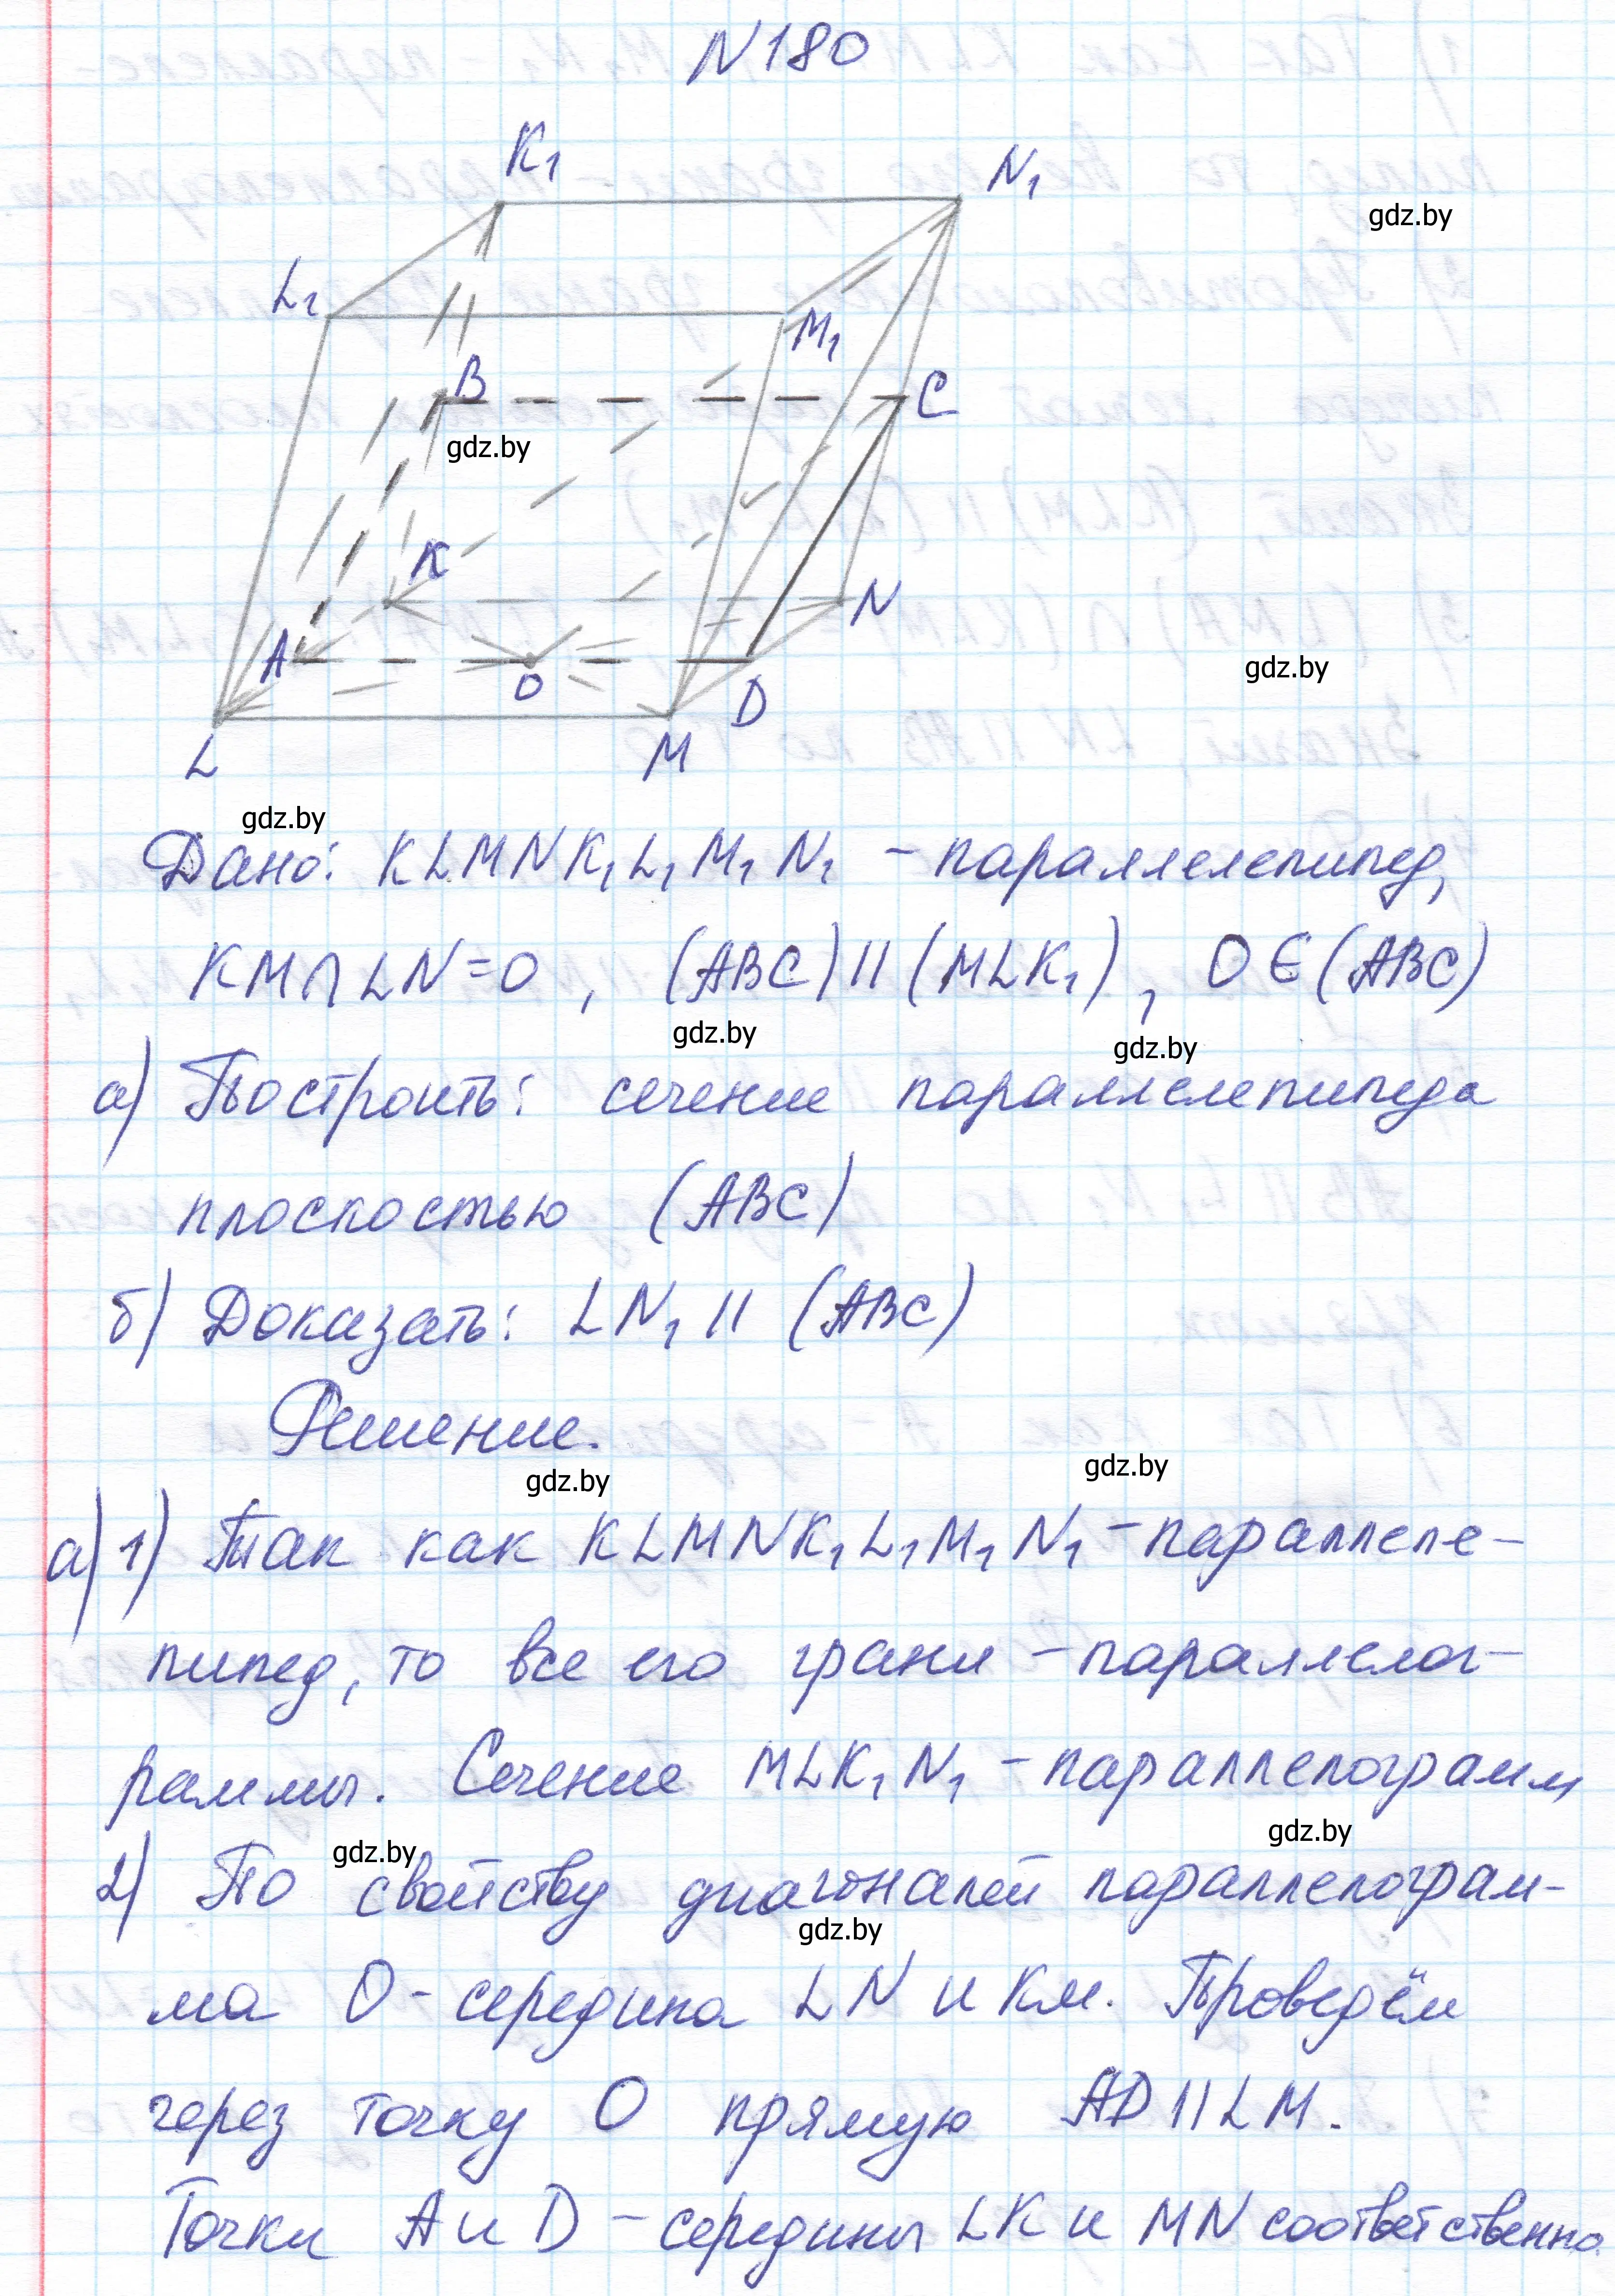 N180
K₁
N₁
gdz.by
L₁
M₁
B
C
gdz.by
K
N
A
gdz.by
O
D
L
M
gdz.by
Дано: KLMNK₁L₁M₁N₁ – параллелепипед,
KM∩LN=O , (ABC)||(MLK₁), O∈(ABC)
gdz.by
gdz.by
а) Построить: сечение параллелепипеда
плоскостью (ABC)
б) Доказать: LN₁ || (ABC)
Решение.
gdz.by
gdz.by
а) 1) Так как KLMNK₁L₁M₁N₁ – параллеле-
пипед, то все его грани – параллелог-
раммы. Сечение MLK₁N₁ – параллелограмм
gdz.by
gdz.by
2) По свойству диагоналей параллелограм-
gdz.by
ма O – середина LN и KM. Проведём
через точку O прямую AD||LM.
Точки A и D – середины LK и MN соответственно